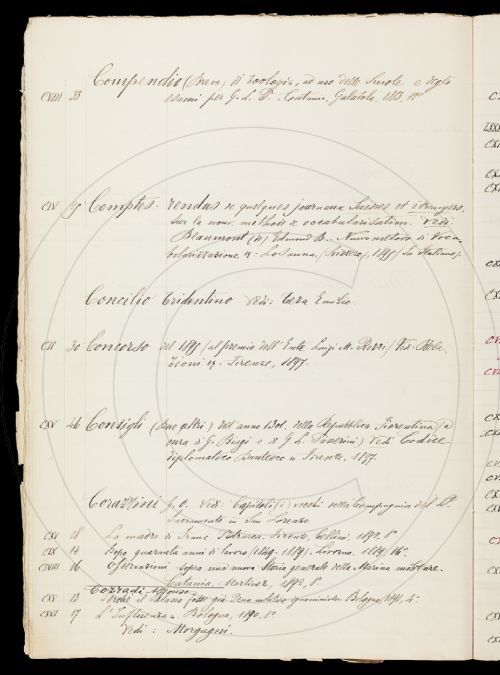 CVIII 33 Compendio (Breve) di Zoologia, ad uso delle Scuole e degli
esami per G. L. D. Catania, Galàtola, 1883, 1°
CIV Comptes-rendus de quelques journaux Suisses et étrangers
sur la nouv. méthode de vocabularisation. Vedi
Beaumont (de) Edmond B. Nuovo metodo di voca-
bolarizzazione &. Losanna, (Svizzera), 1895 (In Italiano).
Concilio Tridentino Vedi: Costa Emilio
CII 30 Concorso del 1895 (al premio dell'Ente Luigi M. Rezzi) Vedi Rela-
zioni &. Firenze, 1897.
CXV 46 Consigli (Due altri) dell'anno 1301 della Repubblica Fiorentina (a
cura di G. Biagi e di G. L. Passerini) Vedi Codice
diplomatico Dantesco in Firenze, 1897
Corazzini G. O. Vedi: Capitoli (i) vecchi della Compagnia del SS.
Sacramento in San Lorenzo
CXV 18 La madre di Franc. Petrarca. Firenze, Cellini, 1892, 8°
CIX 14 Dopo quaranta anni di lavoro (1849-1889). Livorno, 1889, 16°
CXVIII 16 Osservazioni sopra una nuova Storia generale della Marina militare.
Catania, Martinez, 1892, 8°
Corradi Alfonso
CXV 13 Bologna, 1891, 4°
CXVI 17 L'Influenza. Bologna, 1890, 8°
Vedi: Morgagni.